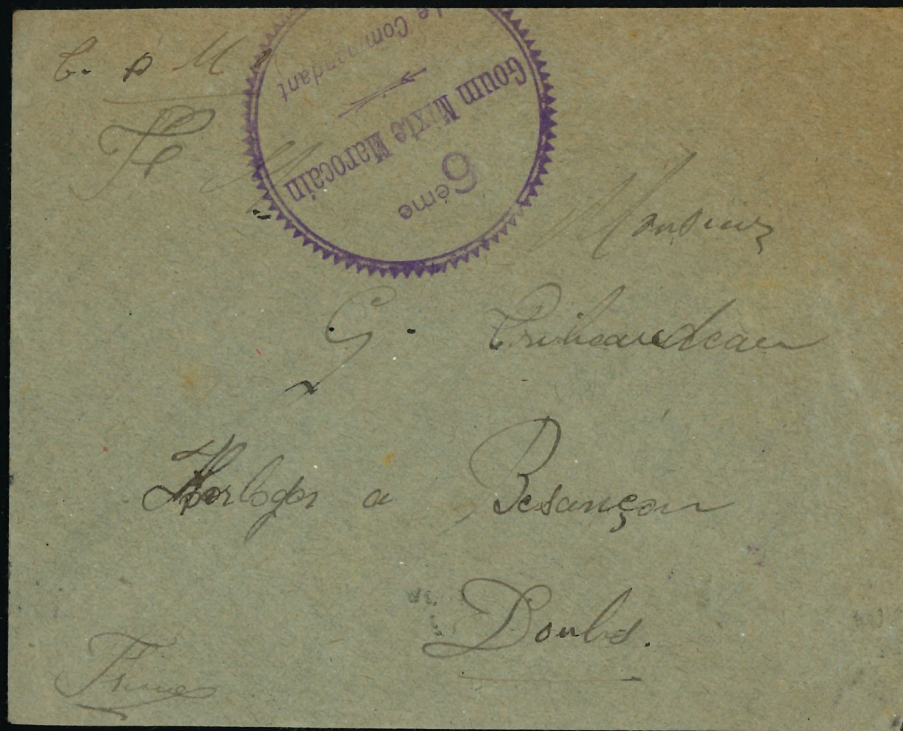 F M
6ème
Goum Mixte Marocain
Le Commandant
Monsieur
G.
Horloger a Besançon
Doubs.
France